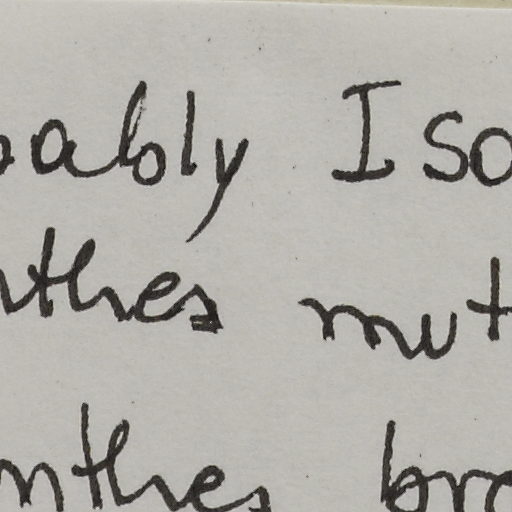 bably Iso
nthes mut
nthes bre